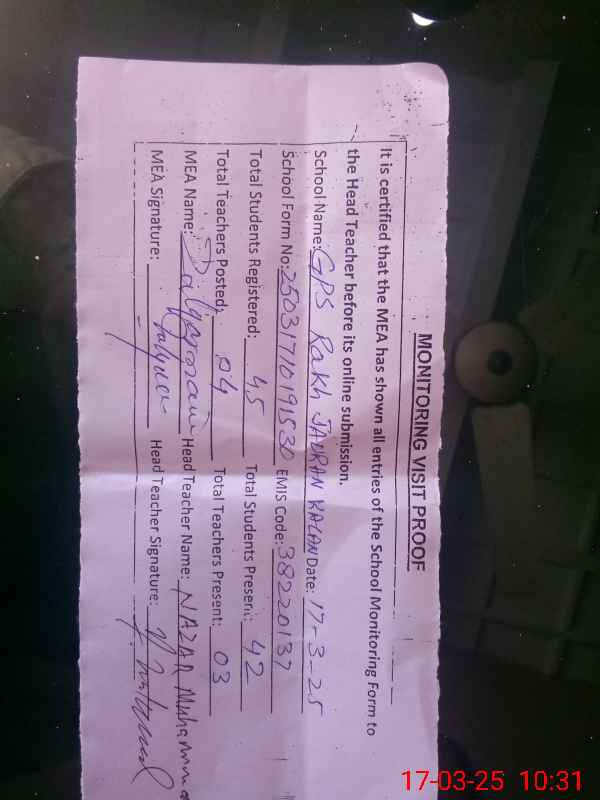 MONITORING VISIT PROOF
It is certified that the MEA has shown all entries of the School Monitoring Form to
the Head Teacher before its online submission.
School Name: GPS Rakh JADRAN KALAN Date: 17-3-25
School Form No: 25031710191530 EMIS Code: 38220137
Total Students Registered: 45 Total Students Present: 42
Total Teachers Posted: 04 Total Teachers Present: 03
MEA Name: Head Teacher Name: NAZAR Muhamma
MEA Signature: Head Teacher Signature:
17-03-25 10:31